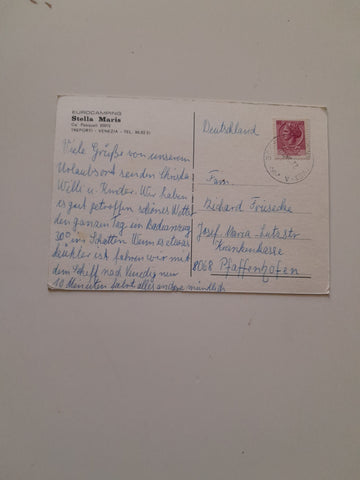 EUROCAMPING
Stella Maris
Ca' Pasquali
TREPORTI - VENEZIA - TEL.
Viele Grüße von unserem
Urlaubsort senden
Willi u. Kinder. Wir haben
es gut getroffen schönes Wetter
den ganzen Tag im
30° im Schatten Wenn es etwas
kühler ist fahren wir mit
dem Schiff nach Venedig nur
10 Minuten Fahrt alles andere mündlich
Deutschland
Fam.
Richard
Josef-Maria-Lutzstr
Krankenkasse
8068 Pfaffenhofen